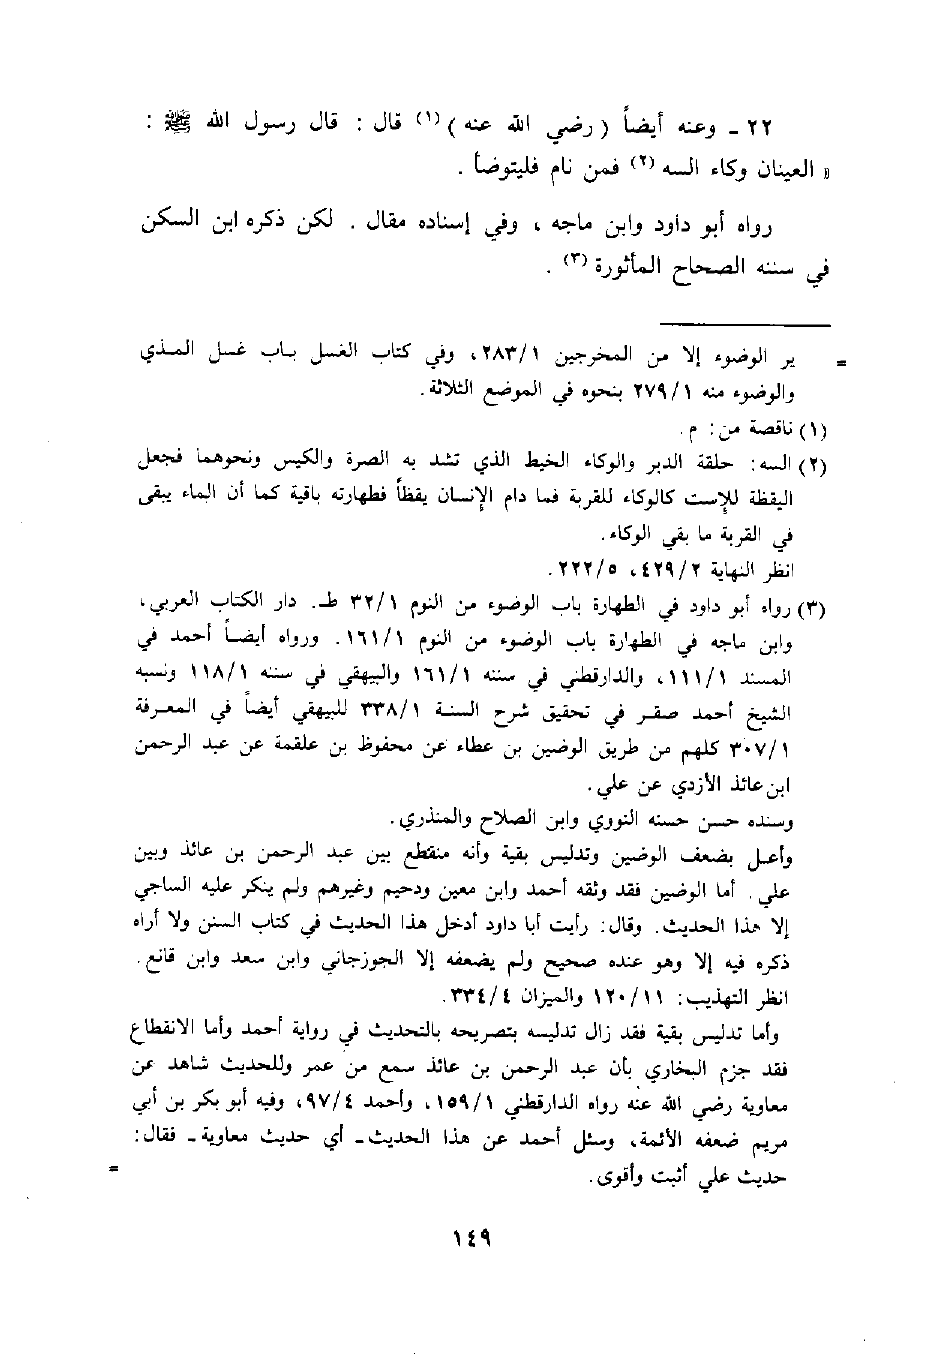 ٢٢ ـ وعنه أيضاً ( رضي الله عنه )(١) قال : قال رسول الله ﷺ :
« العينان وكاء السه (٢) فمن نام فليتوضأ .
رواه أبو داود وابن ماجه ، وفي إسناده مقال . لكن ذكره ابن السكن
في سننه الصحاح المأثورة (٣) .
= ير الوضوء إلا من المخرجين ٢٨٣/١، وفي كتاب الغسل باب غسل المذي
والوضوء منه ٢٧٩/١ بنحوه في الموضع الثلاثة.
(١) ناقصة من: م.
(٢) السه: حلقة الدبر والوكاء الخيط الذي تشد به الصرة والكيس ونحوهما فجعل
اليقظة للإست كالوكاء للقربة فما دام الإنسان يقظاً فطهارته باقية كما أن الماء يبقى
في القربة ما بقي الوكاء.
انظر النهاية ٤٢٩/٢، ٢٢٢/٥.
(٣) رواه أبو داود في الطهارة باب الوضوء من النوم ٣٢/١ طـ. دار الكتاب العربي،
وابن ماجه في الطهارة باب الوضوء من النوم ١٦١/١. ورواه أيضاً أحمد في
المسند ١١١/١، والدارقطني في سننه ١٦١/١ والبيهقي في سننه ١١٨/١ ونسبه
الشيخ أحمد صقر في تحقيق شرح السنة ٣٣٨/١ للبيهقي أيضاً في المعرفة
٣٠٧/١ كلهم من طريق الوضين بن عطاء عن محفوظ بن علقمة عن عبد الرحمن
ابن عائذ الأزدي عن علي.
وسنده حسن حسنه النووي وابن الصلاح والمنذري.
وأعل بضعف الوضين وتدليس بقية وأنه منقطع بين عبد الرحمن بن عائذ وبين
علي. أما الوضين فقد وثقه أحمد وابن معين ودحيم وغيرهم ولم ينكر عليه الساجي
إلا هذا الحديث. وقال: رأيت أبا داود أدخل هذا الحديث في كتاب السنن ولا أراه
ذكره فيه إلا وهو عنده صحيح ولم يضعفه إلا الجوزجاني وابن سعد وابن قانع.
انظر التهذيب: ١٢٠/١١ والميزان ٣٣٤/٤.
وأما تدليس بقية فقد زال تدليسه بتصريحه بالتحديث في رواية أحمد وأما الانقطاع
فقد جزم البخاري بأن عبد الرحمن بن عائذ سمع من عمر وللحديث شاهد عن
معاوية رضي الله عنه رواه الدارقطني ١٥٩/١، وأحمد ٩٧/٤، وفيه أبو بكر بن أبي
مريم ضعفه الأئمة، وسئل أحمد عن هذا الحديث ـ أي حديث معاوية ـ فقال:
حديث علي أثبت وأقوى. =
١٤٩